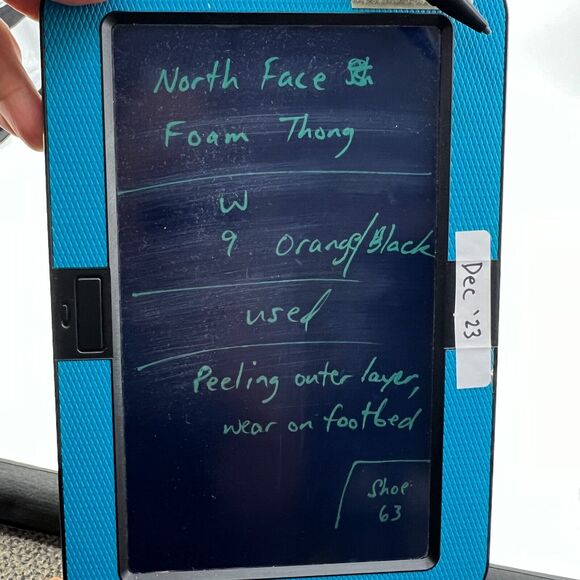 North Face
Foam Thong
W
9 Orange/Black
used
Peeling outer layer,
wear on footbed
Shoe
63
Dec '23